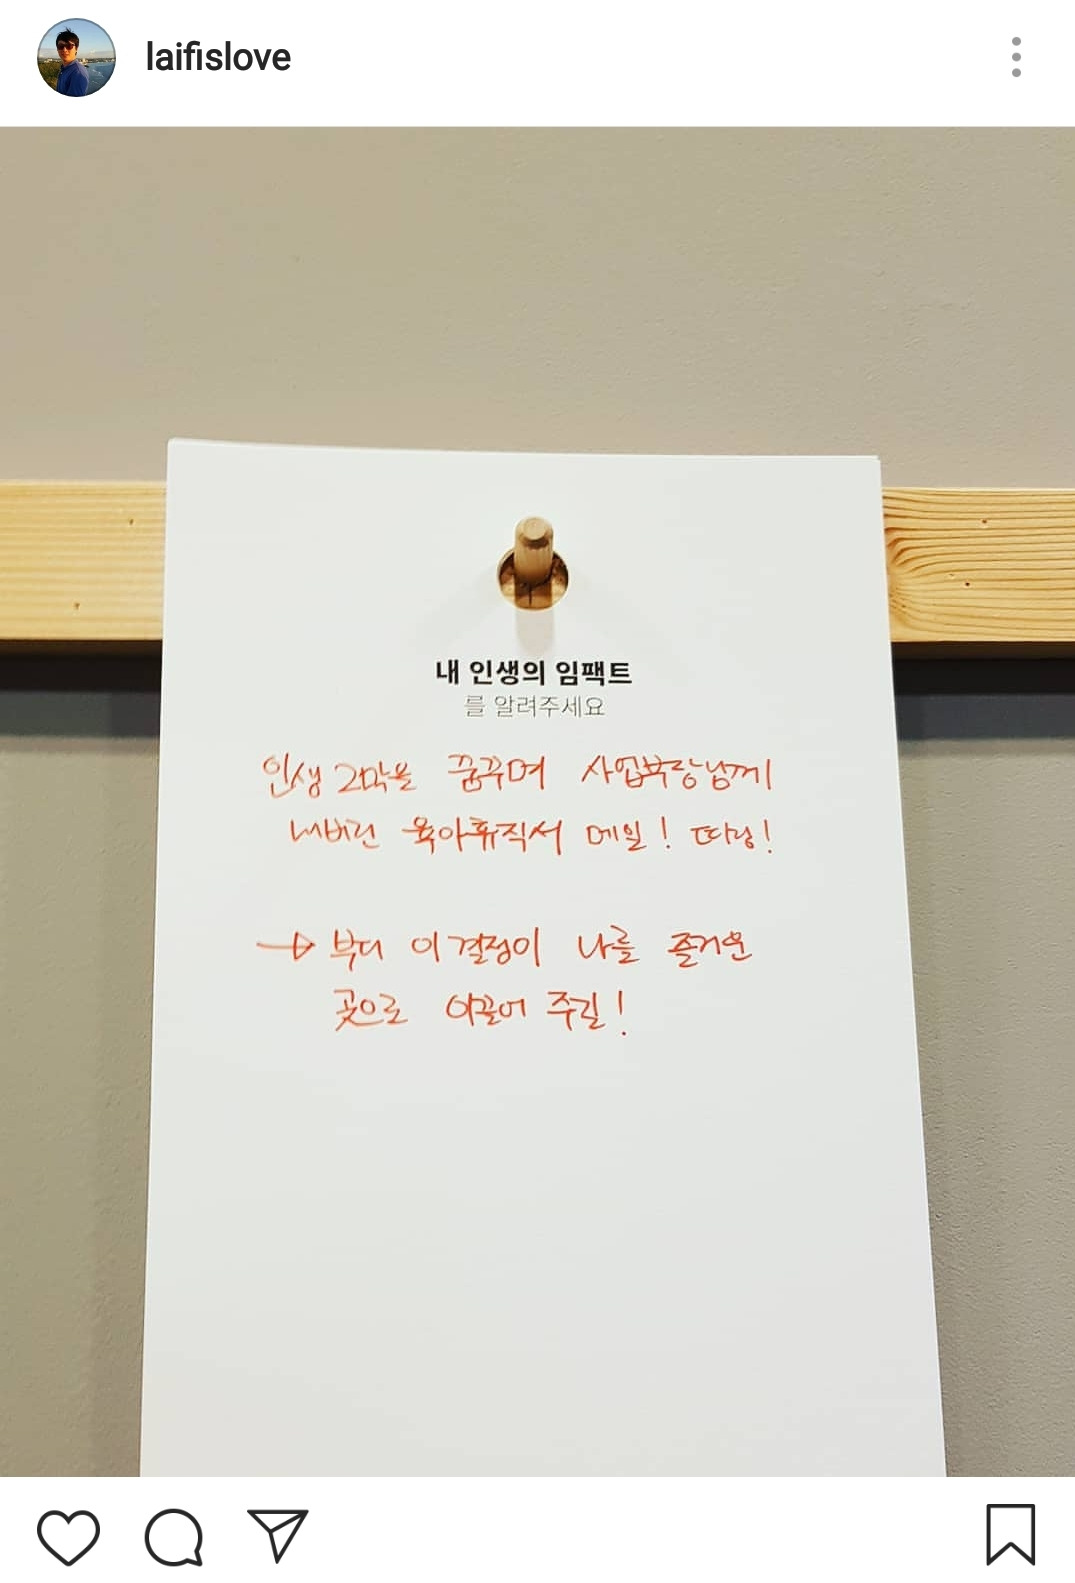 laifislove
내 인생의 임팩트
를 알려주세요
인생 2막을 꿈꾸며 사업부장님께
내버린 육아휴직서 메일! 따랑!
→ 부디 이 결정이 나를 즐거운
곳으로 이끌어 주길!